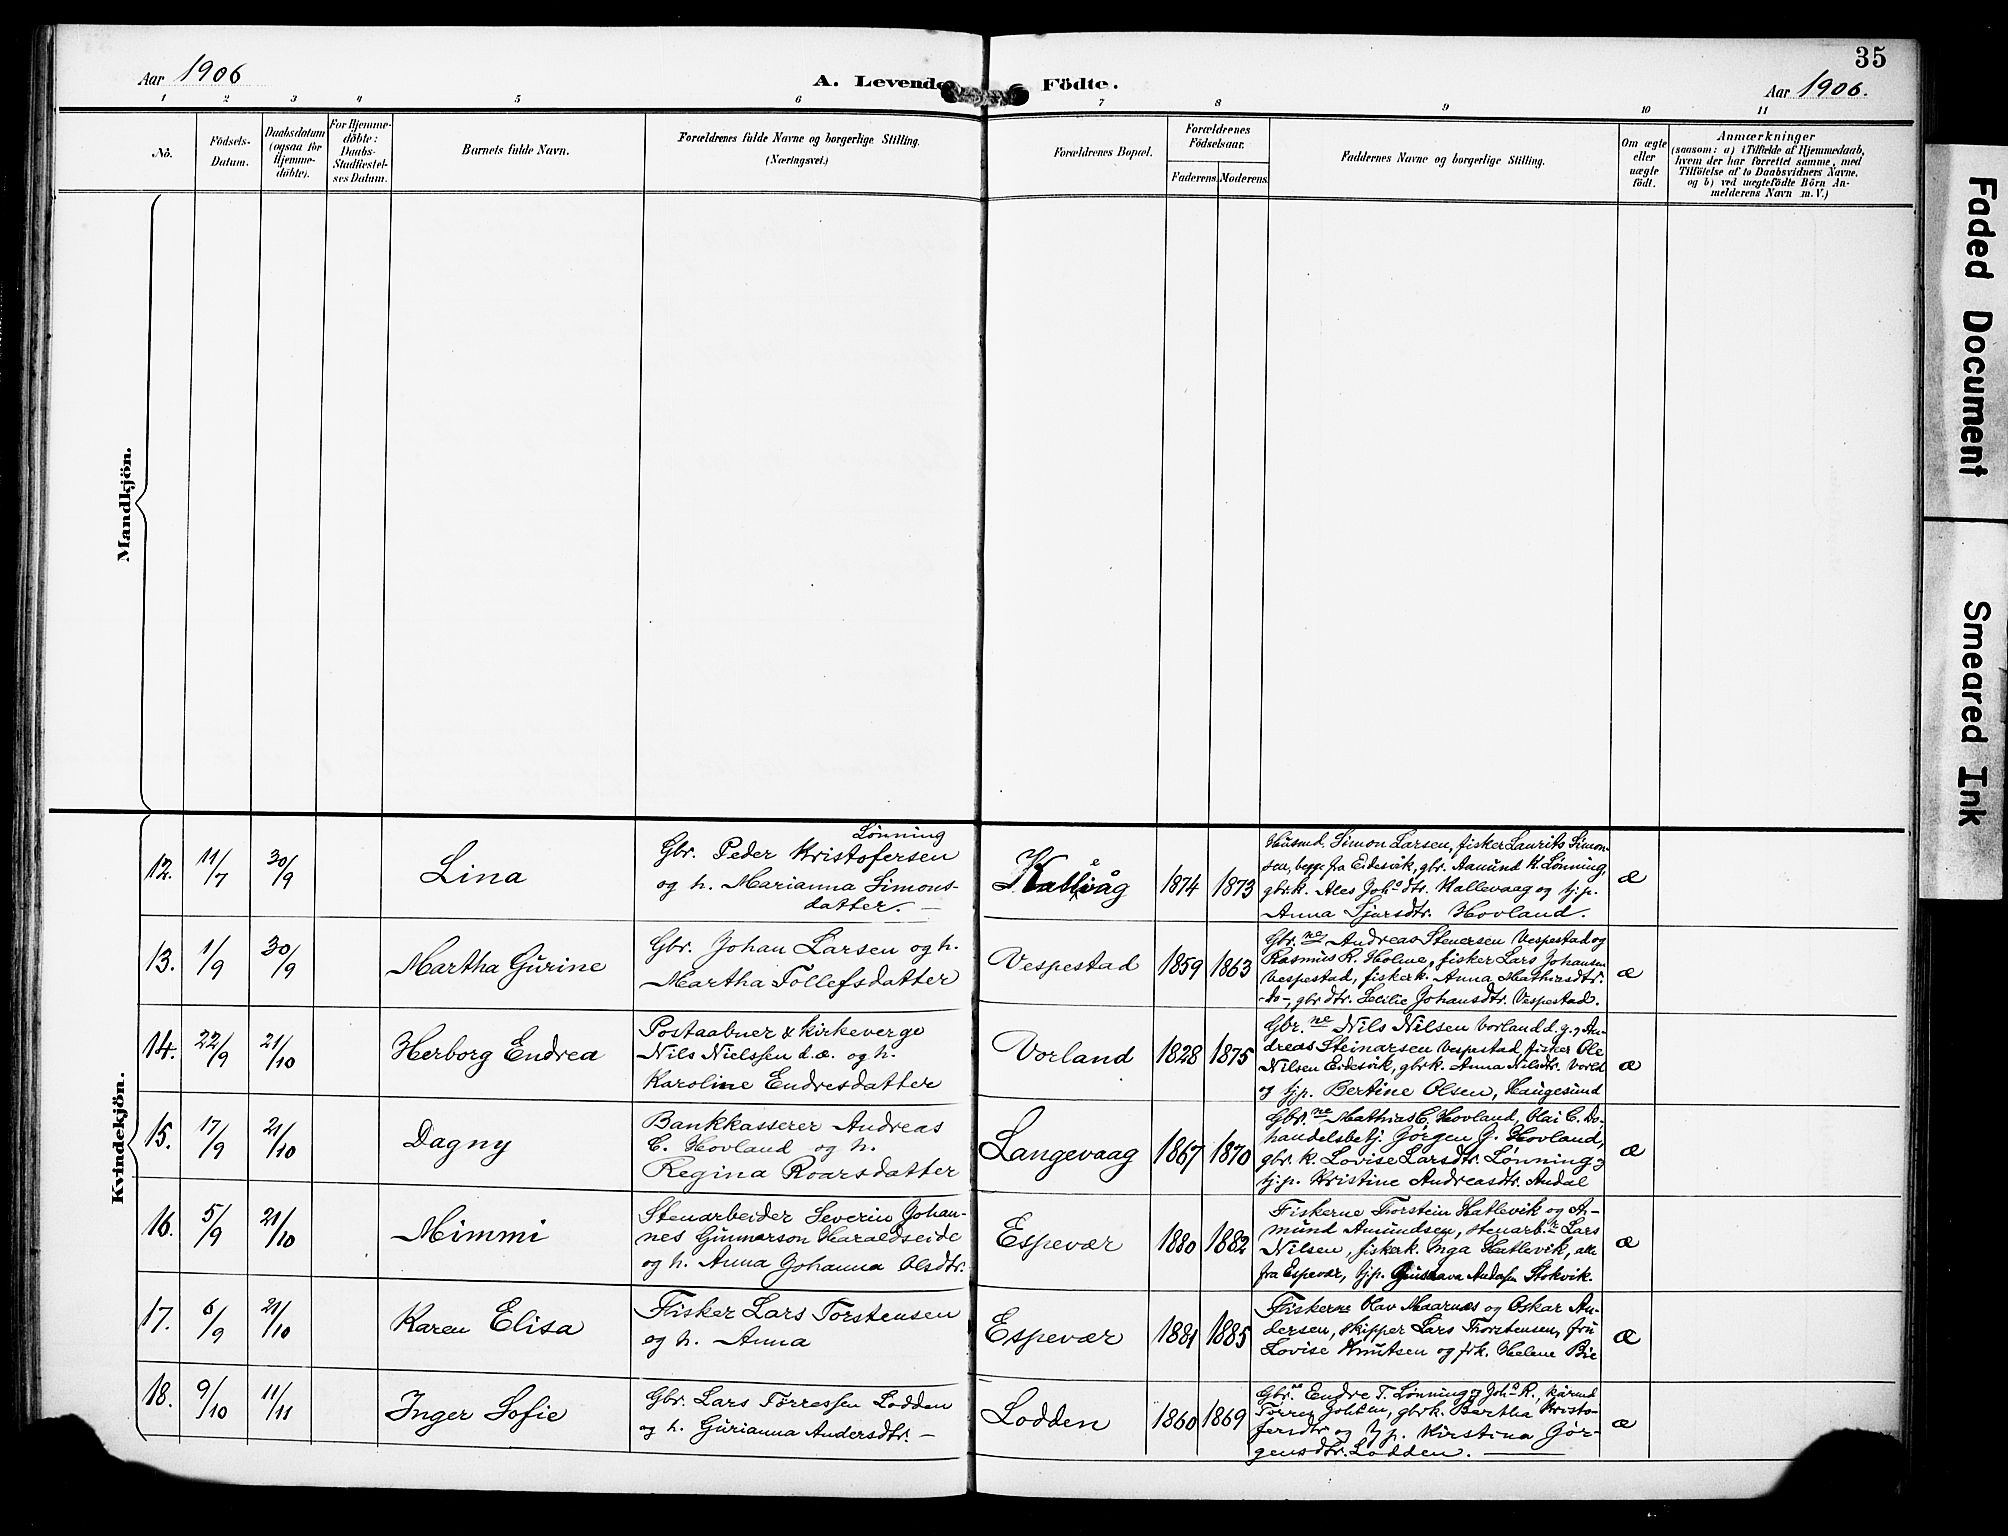 35
Aar 1906
A. Levende Födte.
Aar 1906.
1 2 3 4 5 6 7 8 9 10 11
No.
Födsels-
Datum.
Daabsdatum
(ogsaa for
Hjemme-
döbte).
For Hjemme-
döbte:
Daabs-
Stadfæstel-
ses Datum.
Barnets fulde Navn.
Forældrenes fulde Navne og borgerlige Stilling.
(Næringsvei.)
Forældrenes Bopæl.
Forældrenes
Födselsaar.
Faderens. Moderens.
Faddernes Navne og borgerlige Stilling.
Om ægte
eller
uægte
födt.
Anmærkninger
(saasom: a) i Tilfælde af Hjemmedaab,
hvem der har forrettet samme, med
Tilföielse af to Daabsvidners Navne,
og b) ved uegtefödte Börn An-
melderens Navn m. V.)
Mandkjön.
Kvindekjön.
12. 11/7 30/9
Lina
Lönning
Gbr. Peder Kristofersen
og h. Marianna Simons-
datter. —
Kallevåg
1874 1873
Husmd. Simon Larsen, fisker Laurits Simon-
sen, begge fra Eidesvik, gbr. Aamund K. Lönning,
gbrk. Ales Johs dtr. Kallevaag og tj.p.
Anna Sjursdtr. Hovland.
æ
13. 1/9 30/9
Martha Gurine
Gbr. Johan Larsen og h.
Martha Tollefsdatter
Vespestad
1859 1863
Gbr.ne Andreas Stenersen Vespestad og
Rasmus R. Holme, fisker Lars Johansen
Vespestad, fiskerk. Anna Mathiasdtr.
-do-, gbr dtr. Cecilie Johansdtr. Vespestad.
æ
14. 22/9 21/10
Herborg Endrea
Postaabner & kirkeverge
Nils Nielssen d.æ. og h.
Karoline Endresdatter
Vorland
1828 1875
Gbr.ne Nils Nilsen Vorland d.y. og An-
dreas Steinarsen Vespestad, fisker Ole
Nilsen Eidesvik, gbrk. Anna Nilsdtr. Vorld
og tj.p. Bertine Olsen, Haugesund
æ
15. 17/9 21/10
Dagny
Bankkasserer Andreas
C. Hovland og h.
Regina Roarsdatter
Langevaag
1867 1870
Gbr.ne Mathias C. Hovland, Olai C. Do-
handelsbetj. Jörgen J. Hovland,
gbr. k. Lovise Larsdtr. Lönning og
tj.p. Kristine Andreasdtr. Andal
æ
16. 5/9 21/10
Mimmi
Stenarbeider Severin Johan-
nes Gunnarson Haraldseide
og h. Anna Johanna Olsdtr.
Espevær
1880 1882
Fiskerne Thorstein Hatlevik og A-
mund Amundsen, stenarb. Lars
Nilsen, fiskerk. Inga Hatlevik, alle
fra Espevær, tj.p. Gustava Andersen Stokvik.
æ
17. 6/9 21/10
Karen Elisa
Fisker Lars Torstensen
og h. Anna
Espevær
1881 1885
Fiskerne Olav Maarnæs og Oskar An-
dersen, skipper Lars Thorstensen, fru
Lovise Knutsen og frk. Helene Bie
æ
18. 9/10 11/11
Inger Sofie
Gbr. Lars Törressen Lodden
og h. Gurianna Andersdtr. —
Lodden
1860 1869
Gbr.ne Endre T. Lönning og Johs R.,
Törres gbrk. Bertha Kristo-
fersdtr og tj p. Kirstina Jör-
gensdtr. Lodden.
æ
Faded Document
Smeared Ink